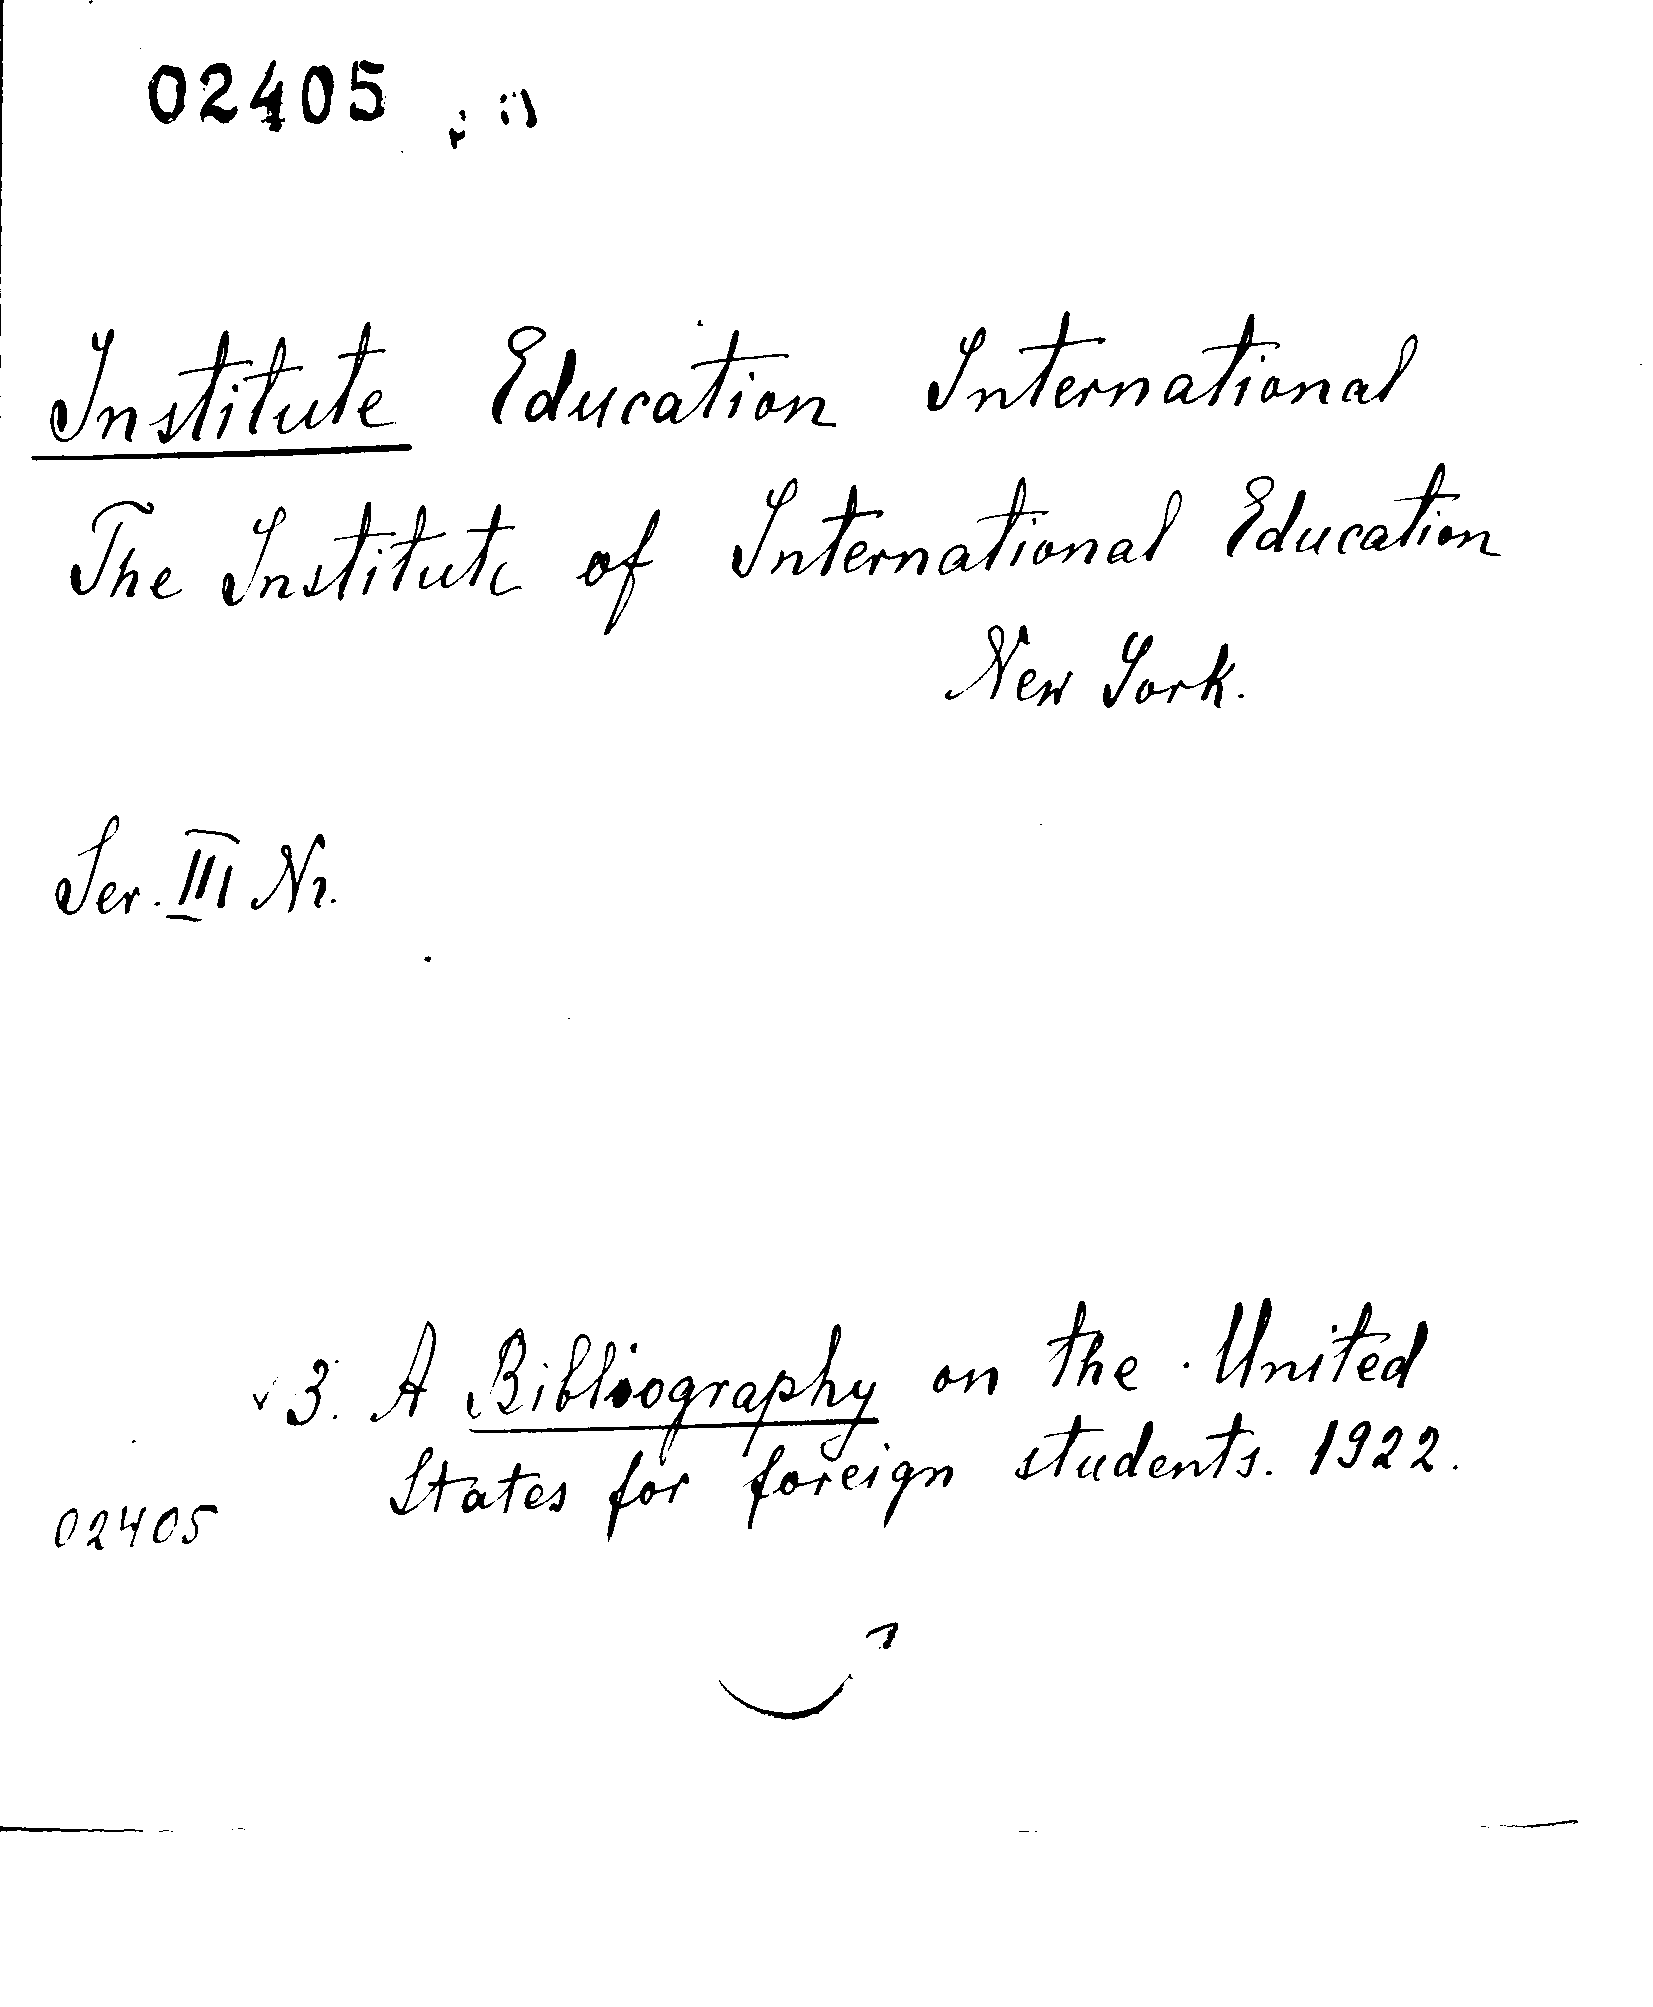 02405
Institute Education International
The Institute of International Education
New York.
Ser. III Nr.
✓ 3. A Bibliography on the United
States for foreign students. 1922.
02405